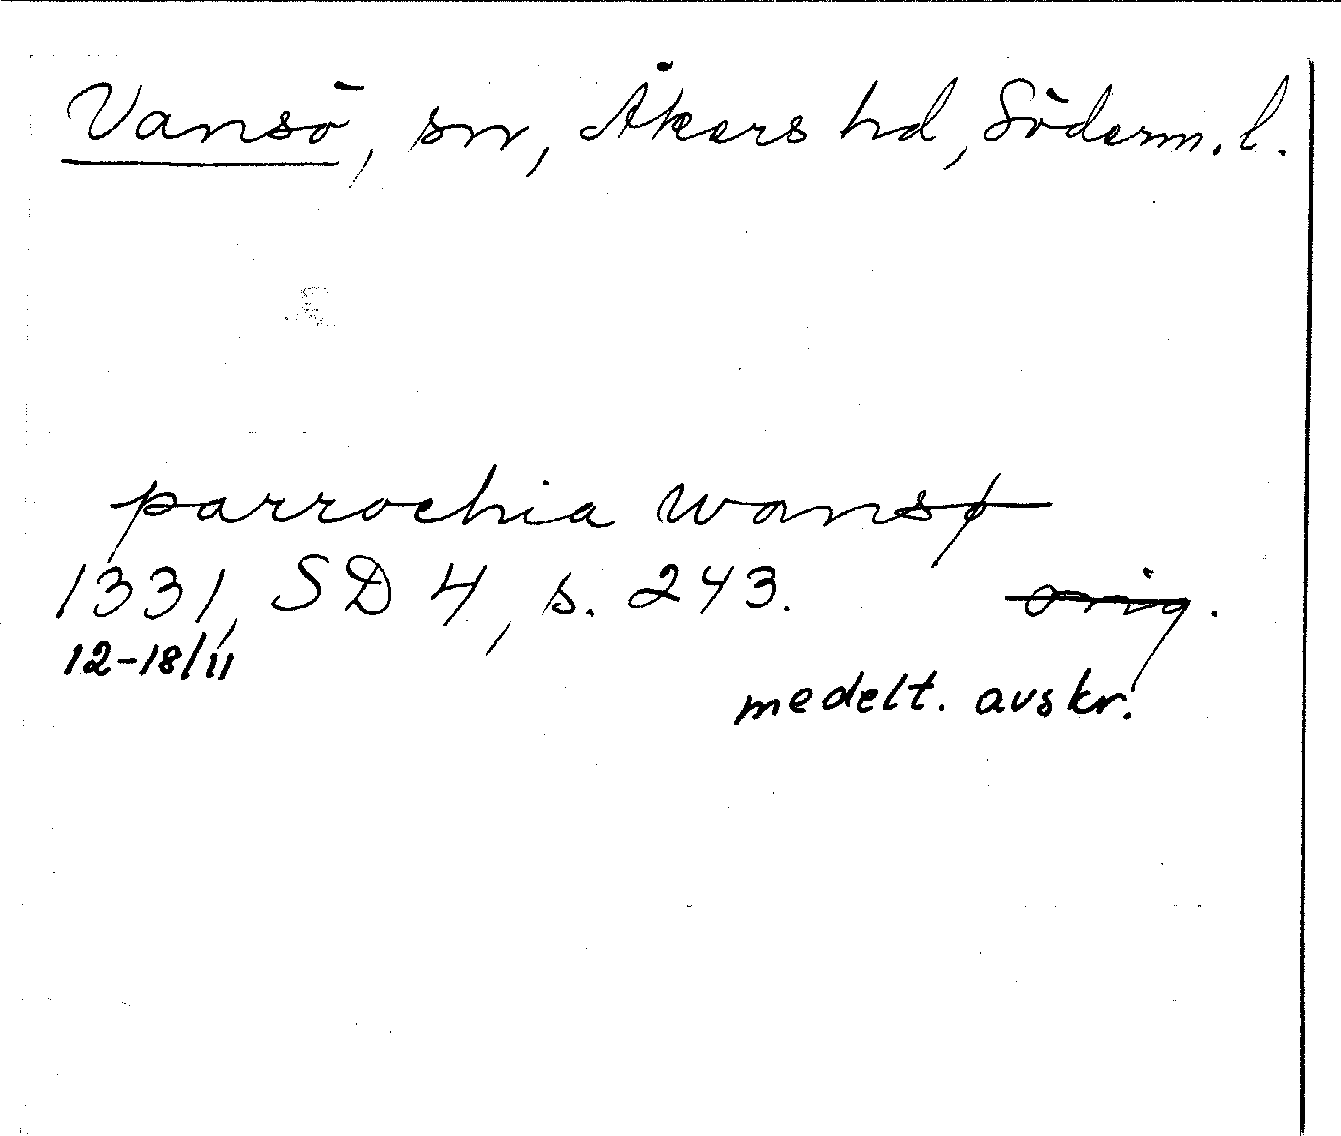 Vansö, sn, Åkers hd, Söderm. l.
parrochia wansø
1331, SD 4, s. 243. orig.
12-18/11
medelt. avskr.